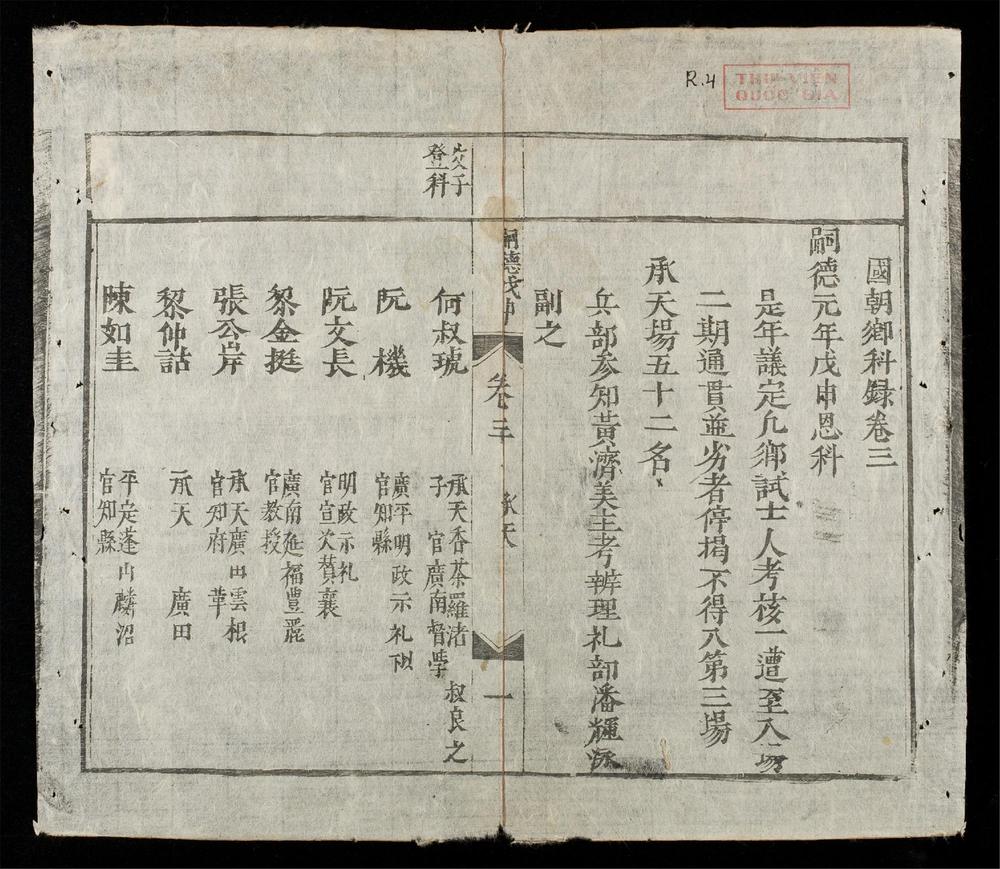 R.4
THƯ VIỆN
QUỐC GIA
國朝鄉科録卷三
嗣德元年戊申恩科
是年議定凡鄉試士人考核一遭至入場
二期通貫並劣者停揭不得入第三場
承天場五十二名
兵部參知黃濟美主考辨理礼部潘輝
副之
嗣德戊申
卷三
承天
一
父子
登科
何叔琥
承天香茶羅渚 叔良之
子 官廣南督學
阮機
廣平明政示礼
官知縣
阮文長
明政示礼
官宣次贊襄
黎金挺
廣南延福豊
官教授
張公岸
承天廣田雲根
官知府 革
黎仲詁
承天 廣田
陳如圭
平定蓬山麟沼
官知縣